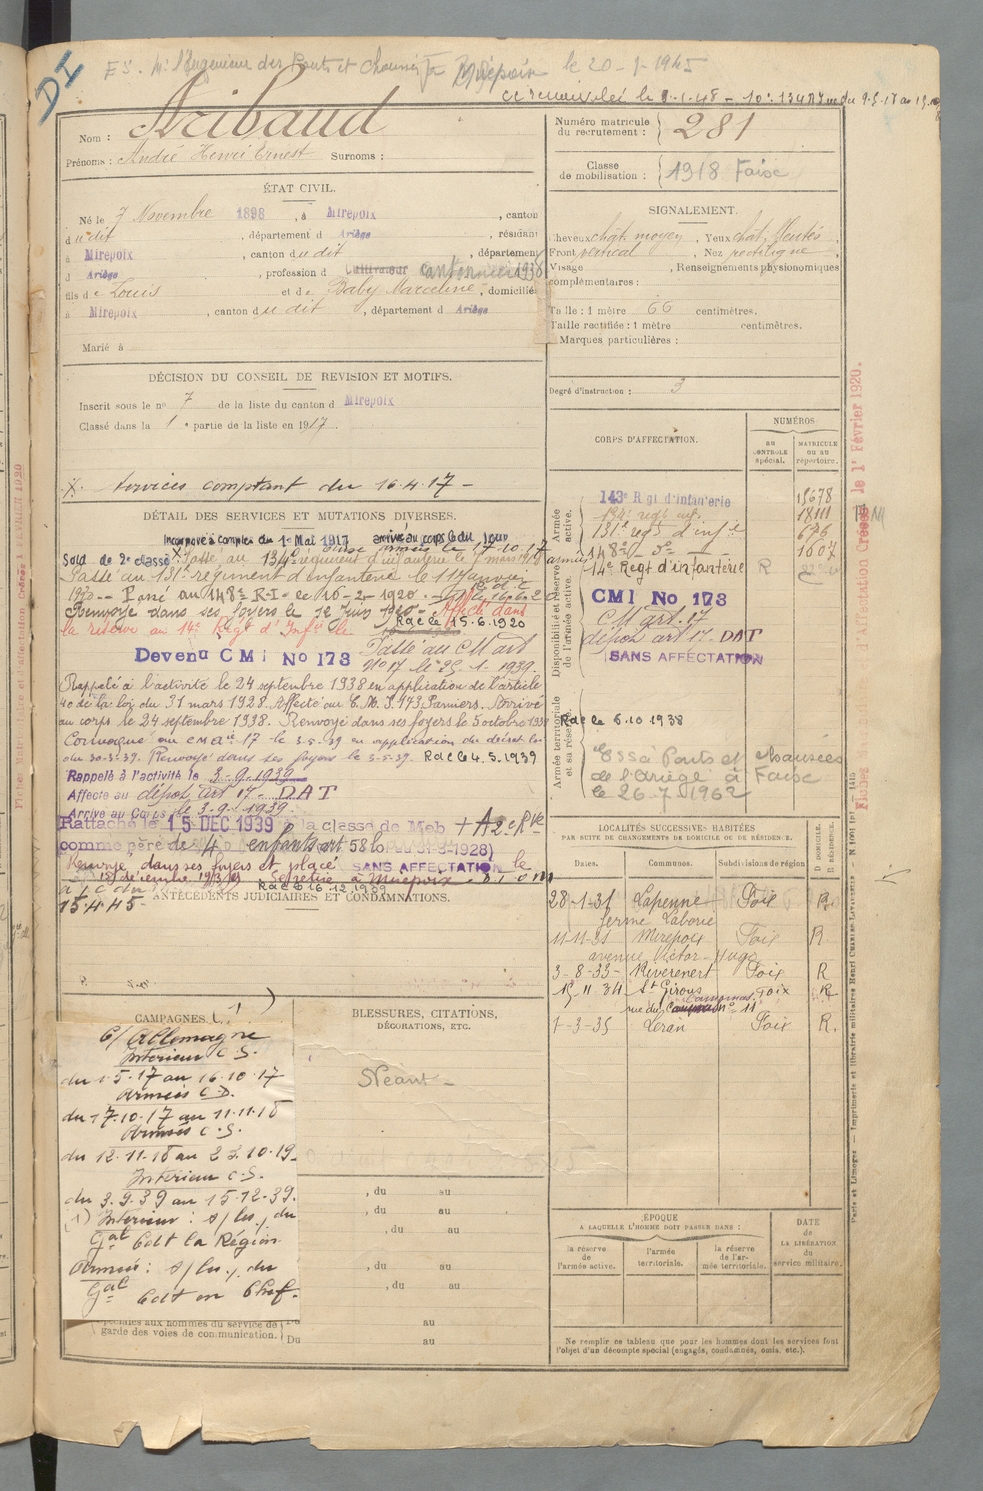 DI
Es. Mr l'Ingenieur des Ponts et Chaussées Mirepoix le 20-1-1945
le 9.1.48 - 10. 13487 du 9.5.18 au
Nom : Aribaud
Prénoms : André Henri Ernest Surnoms :
ÉTAT CIVIL.
Né le 7 Novembre 1898, à Mirepoix, canton
dudit, département d Ariège, résidant
à Mirepoix, canton dudit, département
d Ariège, profession d Cultivateur cantonnier 1938
fils de Louis et de Baby Marceline, domiciliés
à Mirepoix, canton dudit, département d Ariège
Marié à
DÉCISION DU CONSEIL DE REVISION ET MOTIFS.
Inscrit sous le no 7 de la liste du canton d Mirepoix
Classé dans la 1e partie de la liste en 1917.
X. Services comptant du 16.4.17 -
DÉTAIL DES SERVICES ET MUTATIONS DIVERSES.
Incorporé à compter du 1er Mai 1917 arrivé au corps ledit jour
Sold. de 2e classe X Passé au 134e régiment d'infanterie le 7 mars 1918
armées le 17.10.17
Passé au 131e régiment d'infanterie le 11 Janvier
1920 -- Passé au 148e R.I. le 16-2-1920.
Renvoyé dans ses foyers le 12 Juin 1920 - Affecté dans
la réserve au 14e Régt d'Infie le Rdc le 15.6.1920
Devenu CMI No 173 Passé au CM art
No 17 le 25.1.1939.
Rappelé à l'activité le 24 septembre 1938 en application de l'article
40 de la loi du 31 mars 1928. Affecté au C.M.I. 173 Pamiers. Arrivé
au corps le 24 septembre 1938. Renvoyé dans ses foyers le 5 octobre 1938
Convoqué au CM art 17 le 3.5.39 en application du décret loi
du 20-3-39. Renvoyé dans ses foyers le 5-5-39. Rdc le 4.5.1939
Rappelé à l'activité le 3-9-1939
Affecté au dépôt art 17 - DAT
Arrivé au Corps le 3-9-1939.
Rattaché le 15 DEC 1939 à la classe de Mob + A 2e Rve
comme père de 4 enfants art 58 lo du 31-3-1928)
Renvoyé dans ses foyers et placé SANS AFFECTATION le
15 décembre 1939 Se retire à Mirepoix.
Rdc le 16.12.1939
15.4.45-
ANTÉCÉDENTS JUDICIAIRES ET CONDAMNATIONS.
CAMPAGNES (1)
C/ Allemagne
Intérieur C.S.
du 1.5.17 au 16.10.17
Armées C.D.
du 17.10.17 au 11.11.18
Armées C.S.
du 12.11.18 au 23.10.19
Intérieur C.S.
du 3.9.39 au 15.12.39.
(1) Intérieur : s/les, du
Gal Cdt la Région
Armées : s/les, du
Gal Cdt en Chef.
spéciales aux hommes du service de
garde des voies de communication.
BLESSURES, CITATIONS,
DÉCORATIONS, ETC.
Néant -
, du au
, du au
, du au
, du au
, du au
au
Du au
Numéro matricule
du recrutement : 281
Classe
de mobilisation : 1918 Foix
SIGNALEMENT.
Cheveux chât. moyen, Yeux chât.
Front vertical, Nez rectiligne
Visage, Renseignements physionomiques
complémentaires :
Taille : 1 mètre 66 centimètres.
Taille rectifiée : 1 mètre centimètres.
Marques particulières :
Degré d'instruction : 3
CORPS D'AFFECTATION.
NUMÉROS
AU CONTROLE spécial.
MATRICULE OU AU répertoire.
Armée active.
143e Rgt d'infanterie 15678
134e regt inf. 18111
131e regt d'infie 676
148e - do - 1607
Disponibilité et réserve de l'armée active.
14e Regt d'infanterie R
CMI No 173
CM art. 17
dépôt art 17. DAT
SANS AFFECTATION
Armée territoriale et sa réserve.
Rdc le 6.10.1938
Essa Ponts et Chaussées
de l'Ariège à Foix
le 26.7.1962
LOCALITÉS SUCCESSIVES HABITÉES
PAR SUITE DE CHANGEMENTS DE DOMICILE OU DE RÉSIDENCE.
Dates. Communes. Subdivisions de région D. DOMICILE. R. RÉSIDENCE.
28-1-31 Lapenne Foix R.
ferme Laborie
11-11-31 Mirepoix Foix R.
avenue Victor-Hugo
3-8-33- Rivèrenert Foix R
15.11.34 St Girons Foix R
rue du no 11
1-3-35 Leran Foix R.
ÉPOQUE
A LAQUELLE L'HOMME DOIT PASSER DANS :
la réserve de l'armée active.
l'armée territoriale.
la réserve de l'armée territoriale.
DATE DE LA LIBÉRATION du service militaire.
Ne remplir ce tableau que pour les hommes dont les services font
l'objet d'un décompte spécial (engagés, condamnés, omis, etc.).
Paris et Limoges. — Imprimerie et librairie militaires Henri CHARLES-LAVAUZELLE
Fiches Matricule et d'Affectation Créées le 1er Février 1920.